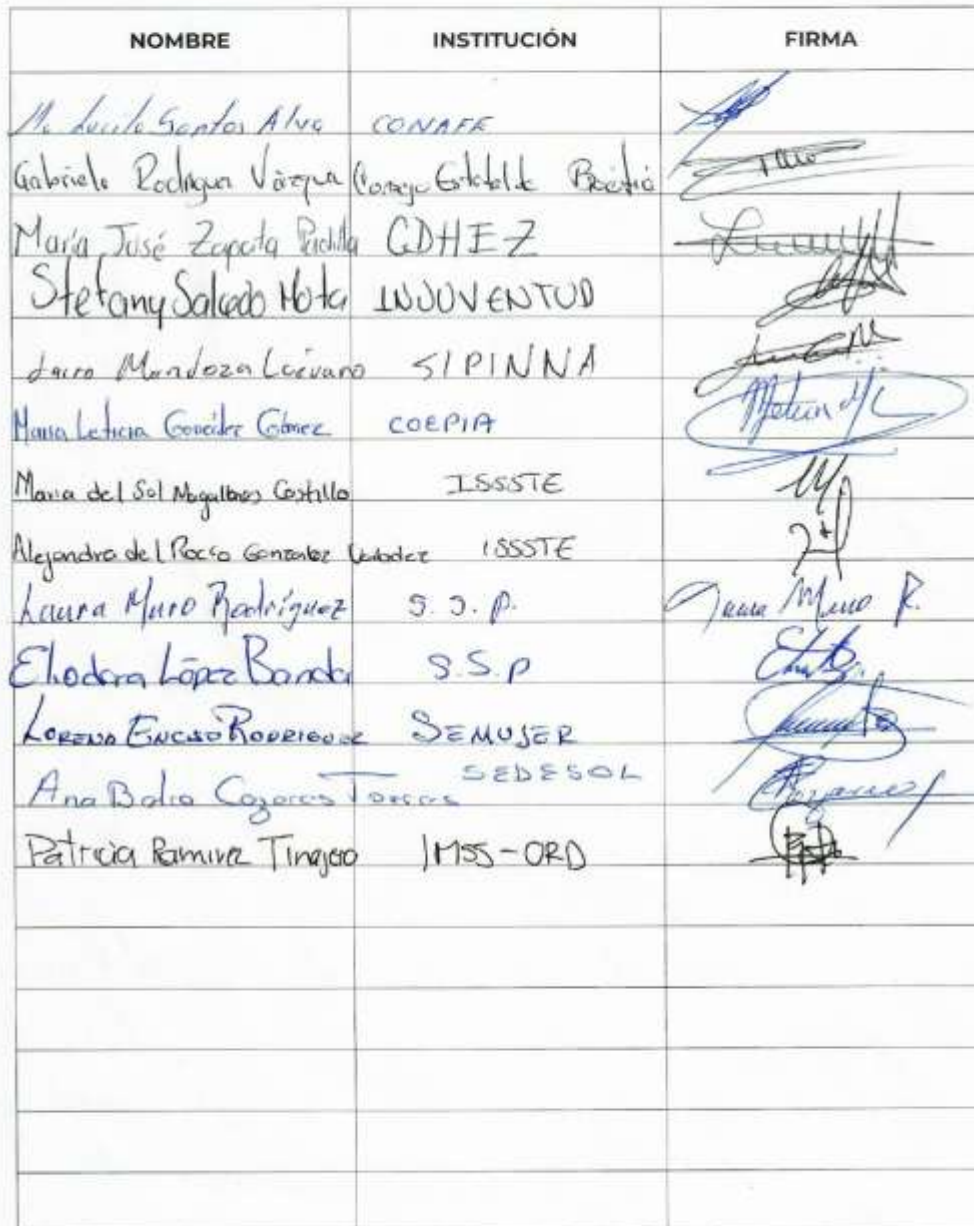 NOMBRE INSTITUCIÓN FIRMA
Ma Lucila Santos Alva CONAFE
Gabriela Rodríguez Vázquez Consejo Estatal de
María José Zapata Padilla CDHEZ
Stefany Salcedo Mota INJUVENTUD
Mendoza Luévano SIPINNA
Maria Leticia González Gómez COEPIA
Maria del Sol Magallanes Castillo ISSSTE
Alejandra del Rocío Gonzalez ISSSTE
Laura Muro Rodríguez S.S.P. Laura Muro R.
Eliodora López Banda S.S.P
LORENA ENCISO RODRIGUEZ SEMUJER
Ana Cazares Torres SEDESOL
Patricia Ramirez Tinajero IMSS-ORD